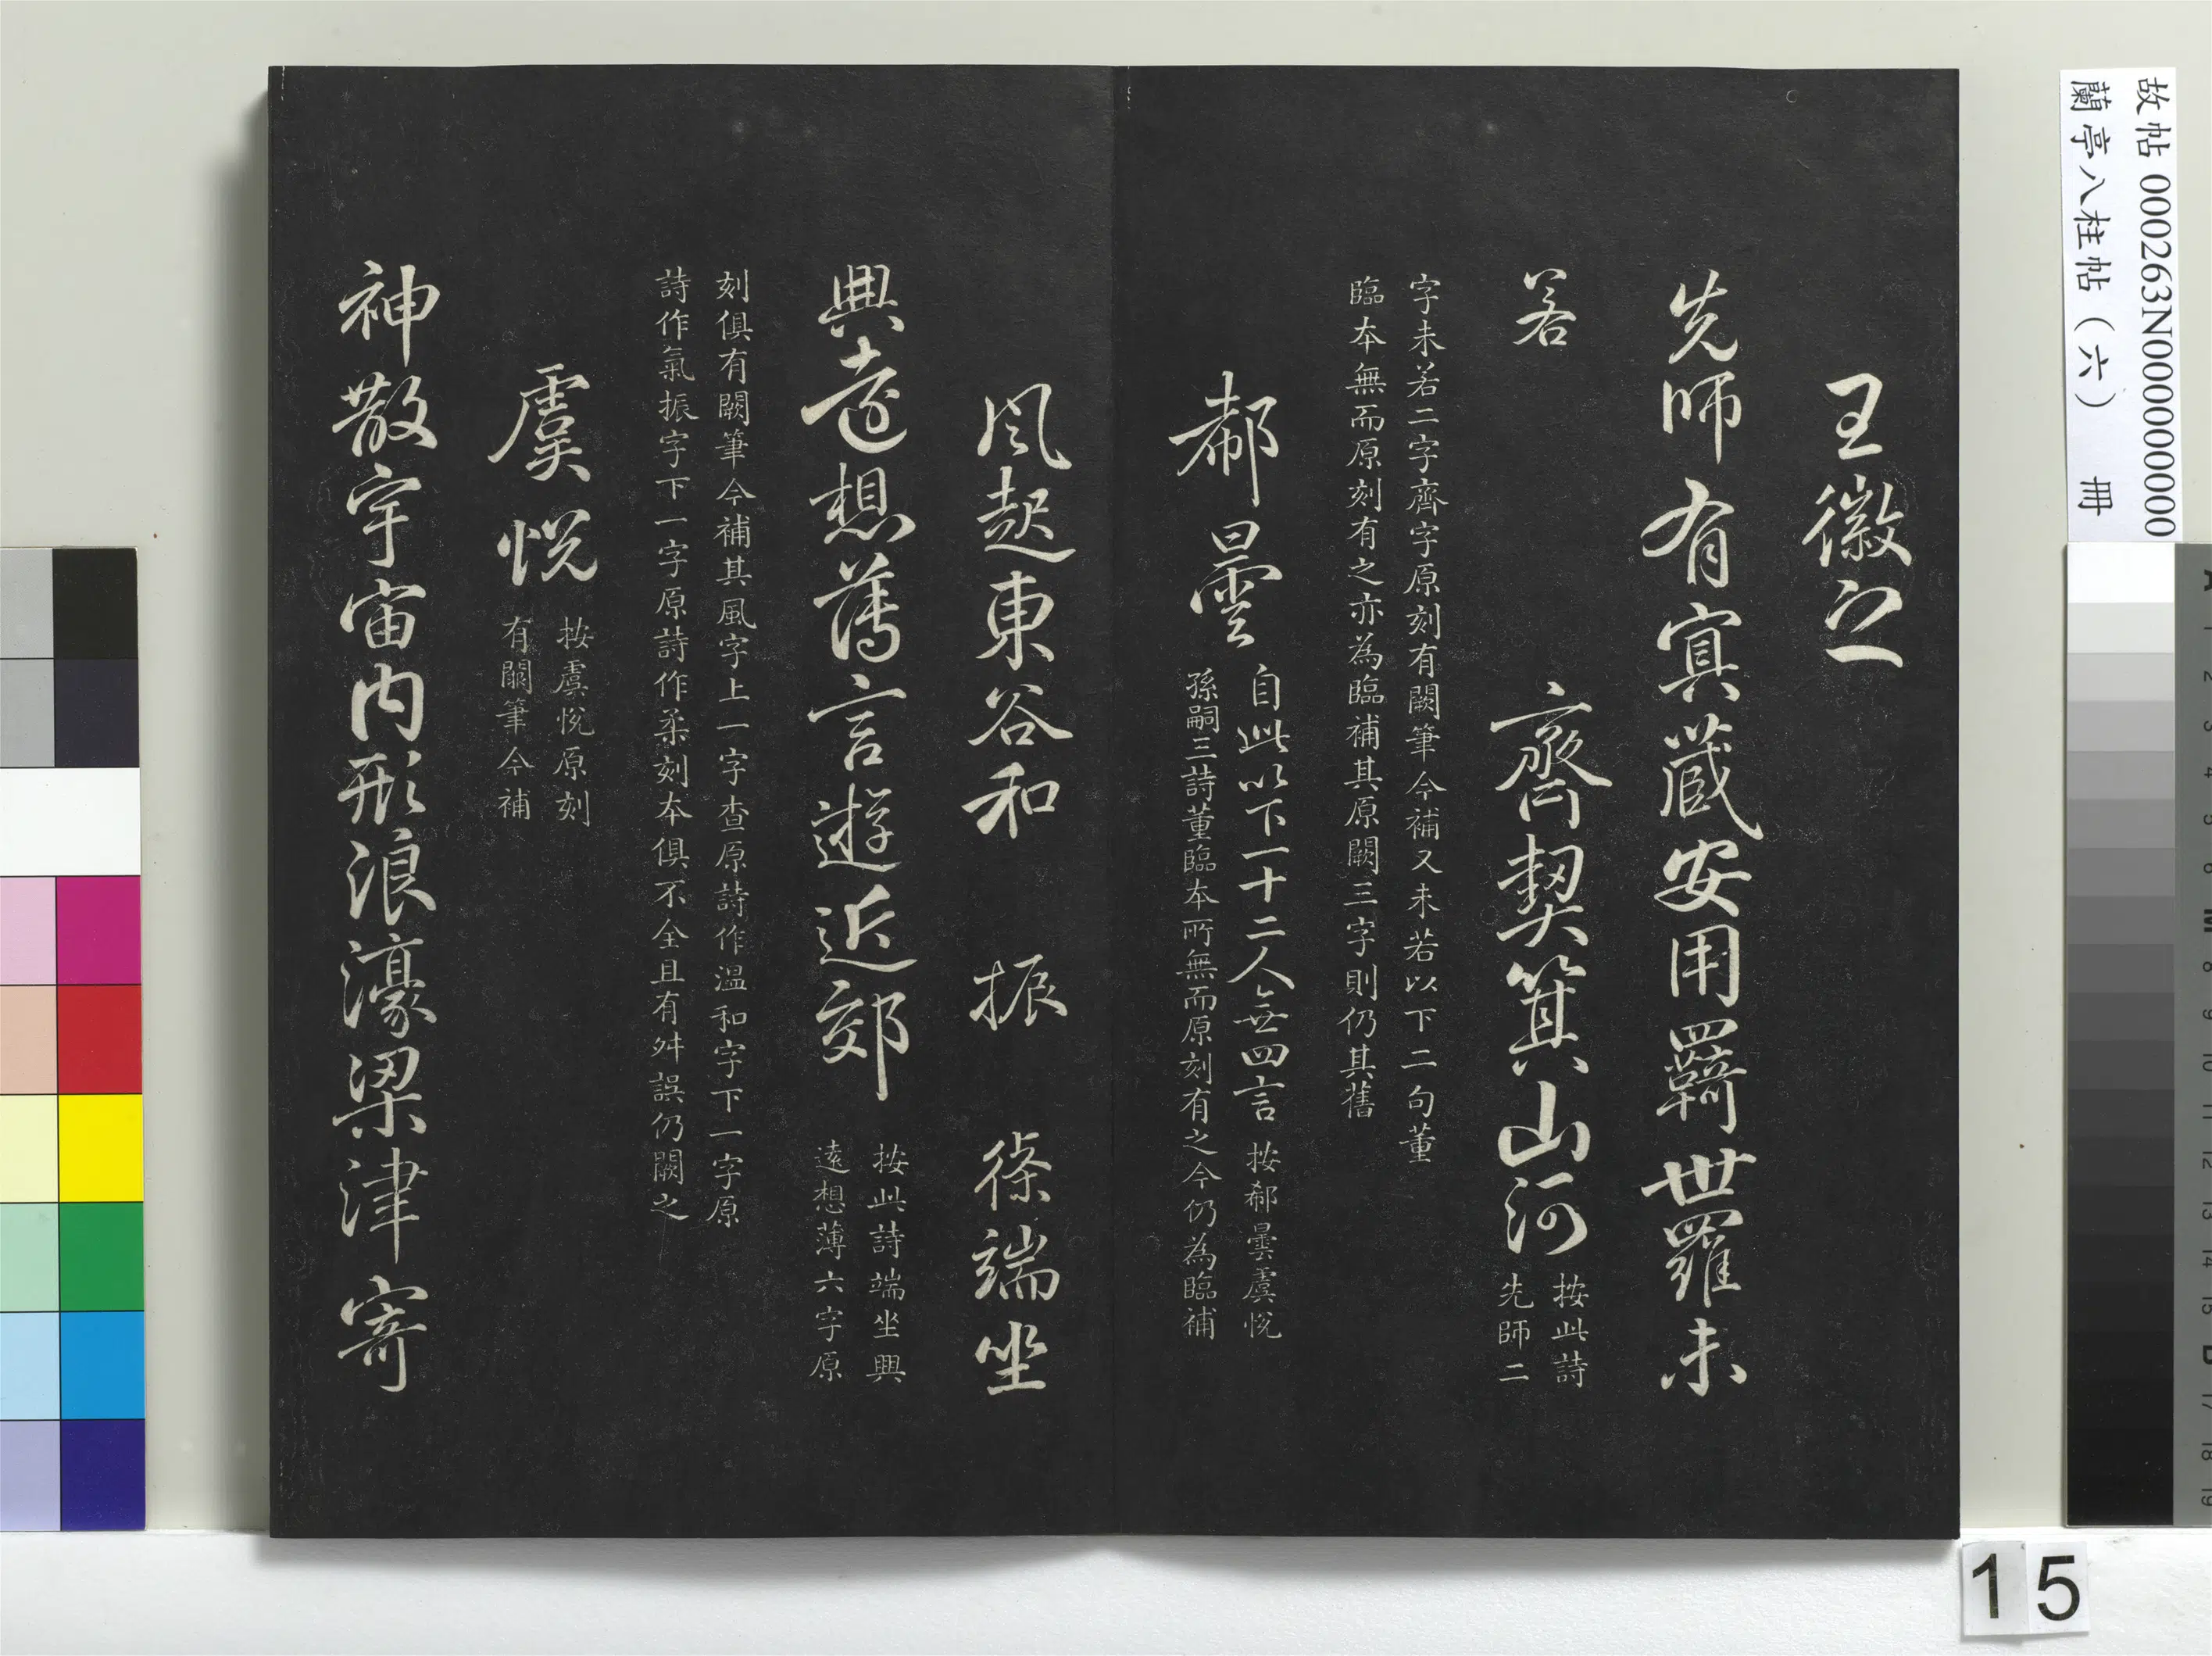 王徽之
先師有冥藏安用羈世羅未
若　齊契箕山河
按此詩
先師二
字未若二字齊字原刻有闕筆今補又未若以下二句董
臨本無而原刻有之亦為臨補其原闕三字則仍其舊
郗曇
自此以下一十二人無四言
按郗曇虞悅
孫嗣三詩董臨本所無而原刻有之今仍為臨補
風起東谷和　振　條端坐
興遠想薄言遊近郊
按此詩端坐興
遠想薄六字原
刻俱有闕筆今補其風字上一字查原詩作溫和字下一字原
詩作氣振字下一字原詩作柔刻本俱不全且有舛誤仍闕之
虞悅
按虞悅原刻
有闕筆今補
神散宇宙內形浪濠梁津寄
故帖 000263N000000000
蘭亭八柱帖（六） 冊
15